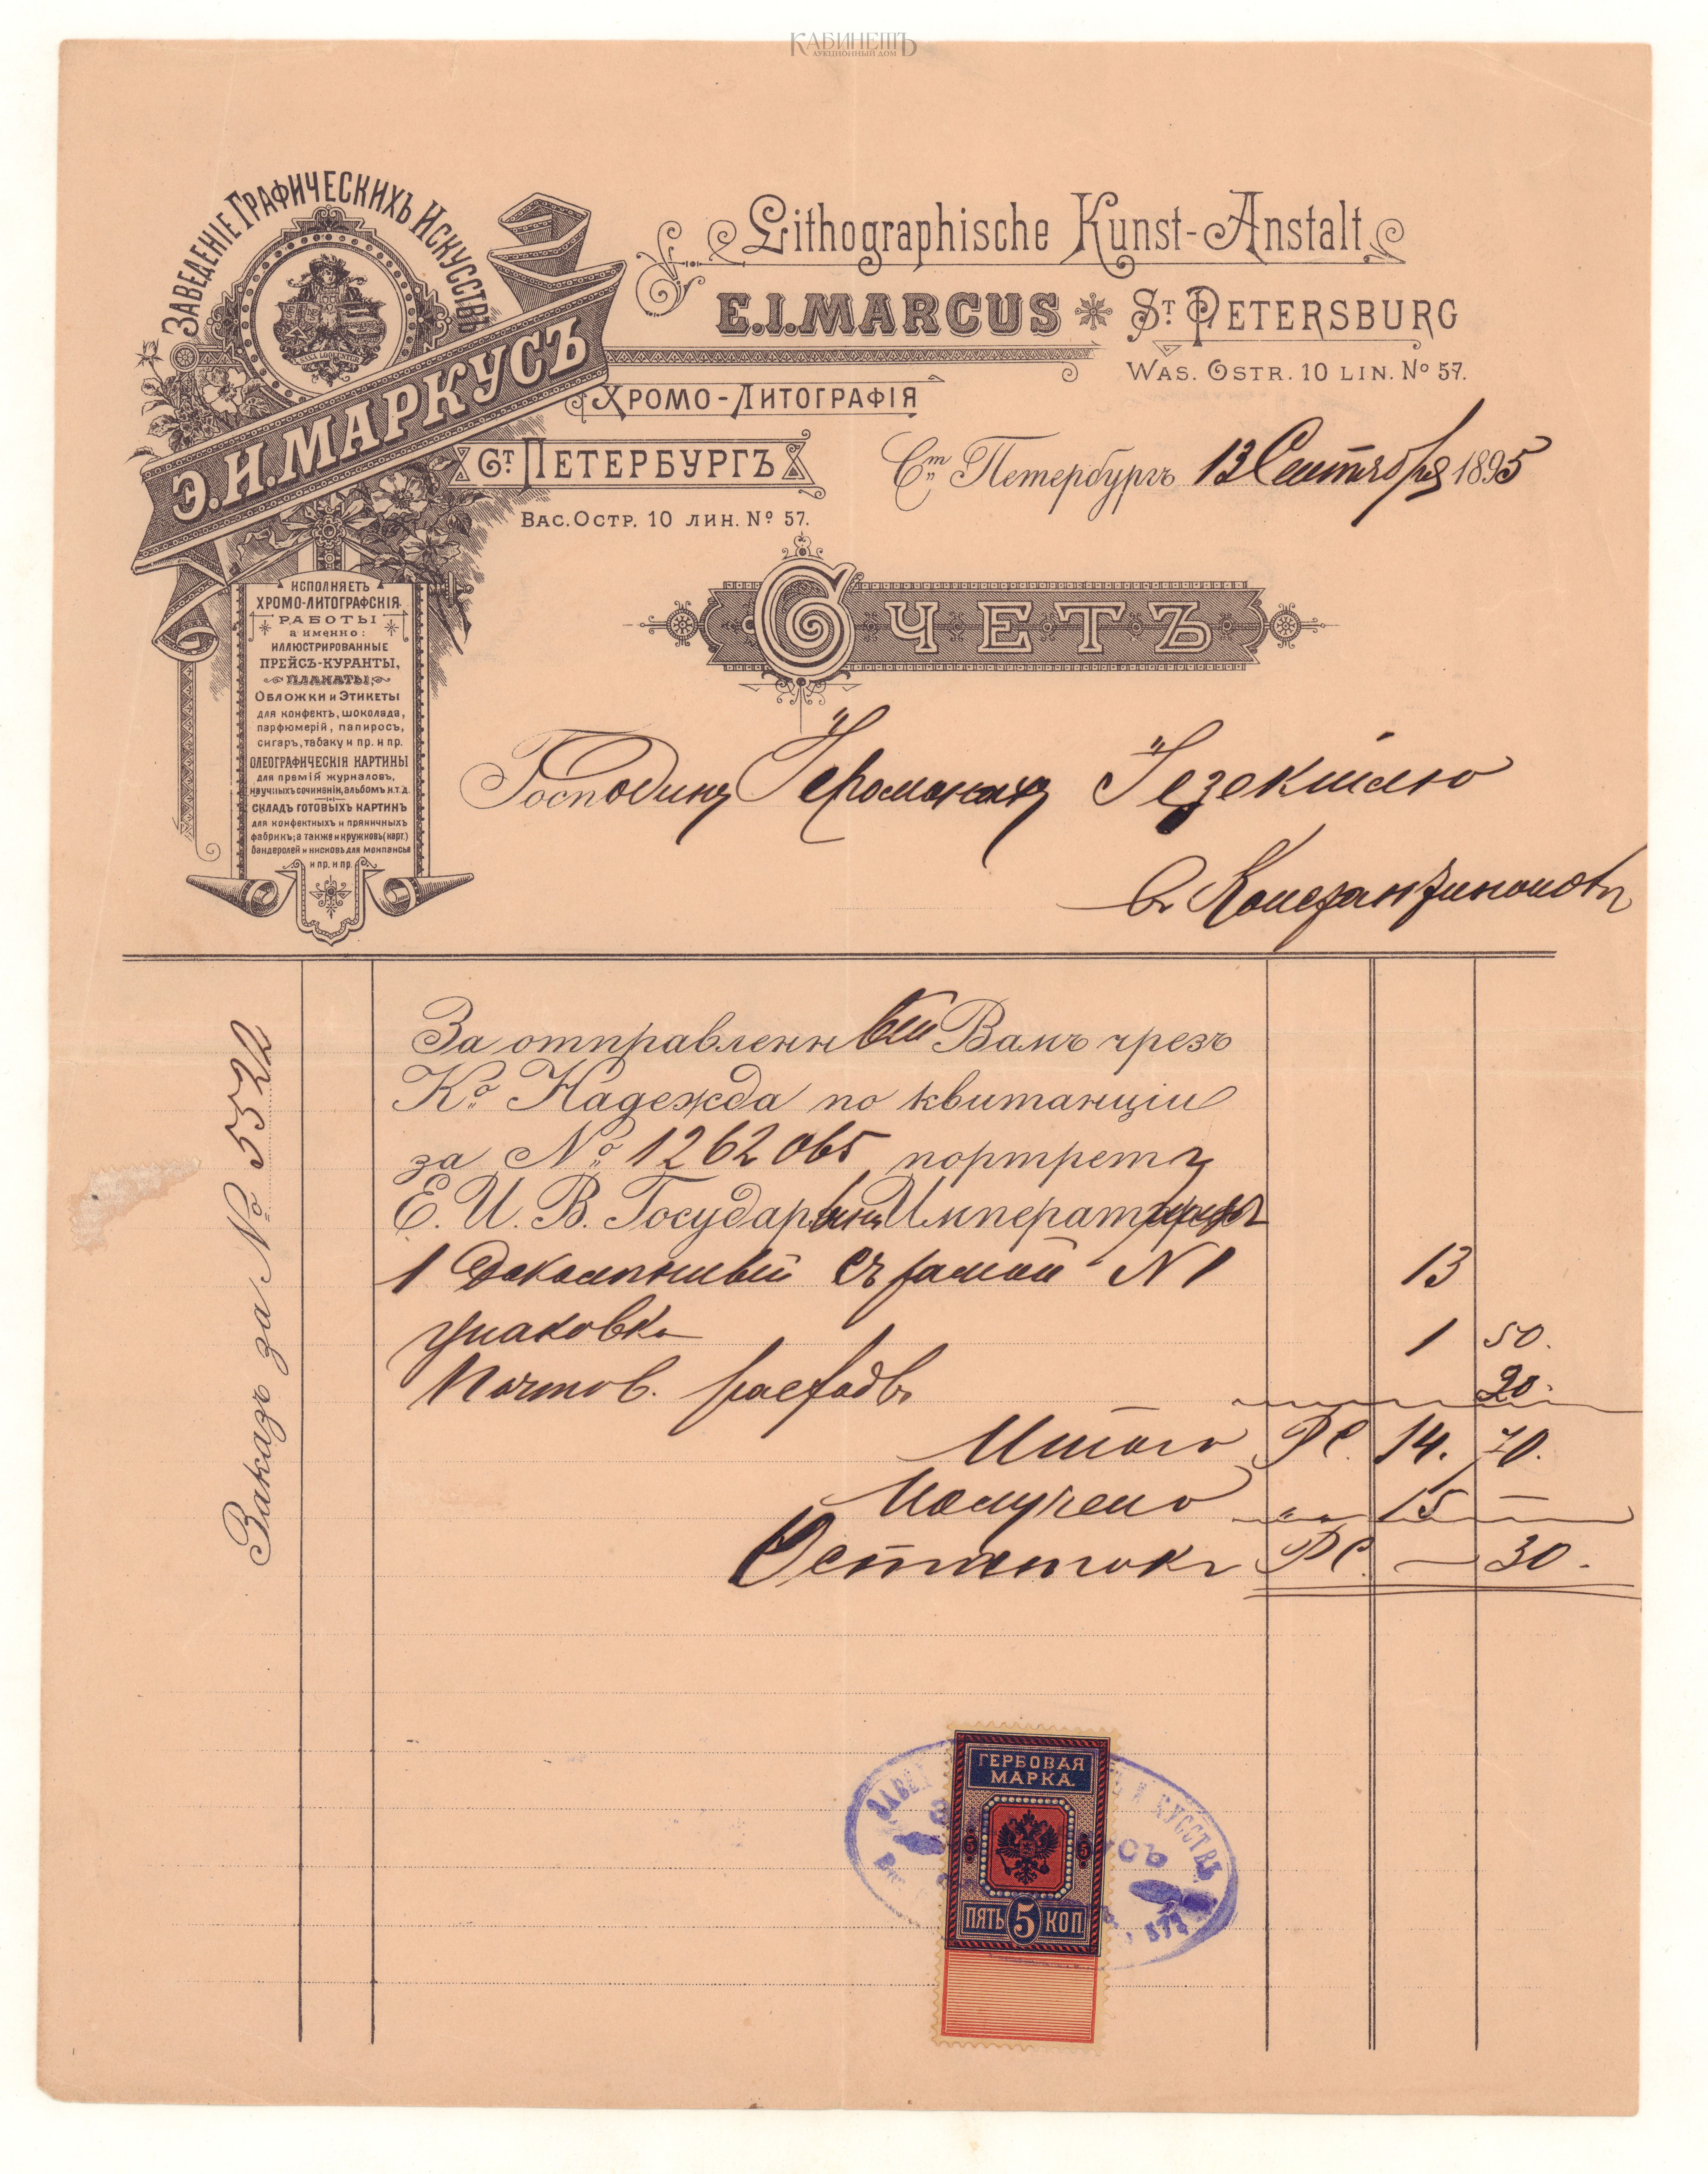 КАБИНЕТЪ
АУКЦИОННЫЙ ДОМ
ЗАВЕДЕНІЕ ГРАФИЧЕСКИХЪ ИСКУССТВЪ
SAXA LOQUUNTUR
Э.И.МАРКУСЪ
Lithographische Kunst-Anstalt
E.I.MARCUS ST PETERSBURG
WAS. OSTR. 10 LIN. No 57.
ХРОМО-ЛИТОГРАФІЯ
СТ ПЕТЕРБУРГЪ
ВАС. ОСТР. 10 ЛИН. No 57.
Ст Петербургъ 13 Сентября 1895
СЧЕТЪ
ИСПОЛНЯЕТЪ
ХРОМО-ЛИТОГРАФСКІЯ
РАБОТЫ
а именно:
ИЛЛЮСТРИРОВАННЫЕ
ПРЕЙСЪ-КУРАНТЫ,
ПЛАКАТЫ,
ОБЛОЖКИ и ЭТИКЕТЫ
для конфектъ, шоколада,
парфюмерій, папиросъ,
сигаръ, табаку и пр. и пр.
ОЛЕОГРАФИЧЕСКІЯ КАРТИНЫ
для премій журналовъ,
научныхъ сочиненій, альбомъ и.т.д.
СКЛАДЪ ГОТОВЫХЪ КАРТИНЪ
для конфектныхъ и пряничныхъ
фабрикъ; а также и кружковъ (карт.)
бандеролей и кисковъ для монпансье
и пр. и пр.
Господину
въ
Заказъ за No 5522
За отправленный Вамъ чрезъ
Ко Надежда по квитанціи
за No 1262065 портретъ
Е. И. В. Государыни Императрицы
1 съ рамой N 1 13
упаковка 1 50.
Почтов. расходъ 20.
Итого РС. 14. 70.
Получено " " 15 —
Остатокъ РС. — 30.
ГЕРБОВАЯ
МАРКА.
5 5
ПЯТЬ 5 КОП